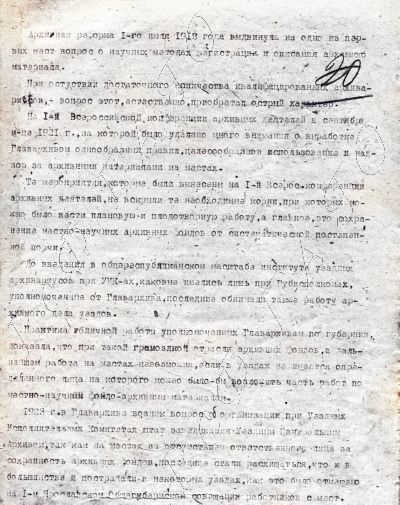 Архивная реформа 1-го июля 1918 года выдвинула на одно из пер-
вых мест вопрос о научных методах регистрации и описания архивного
материала.
20
При остуствии достаточного количества квалифицированных архива-
риусов,- вопрос этот, естественно, приобретал острый характер.
На 1-й Всероссийской конференции архивных деятелей в сентябре
м-це 1921 г., на которой было уделено много внимания о выработке
Главархивом однообразных правил, целесообразное использование и над-
зор за архивными материалами на местах.
Те мероприятия, которые были вынесены на 1-й Всерос. конференции
архивных деятелей, не вскрыли те необходимые корни, при которых мо-
жно было вести плановую и плодотворную работу, а главное, это сохра-
нение местно-научных архивных фондов от систематической постепен-
ной порчи.
До введения в общереспубликанском масштабе института уездных
архивариусов при УИК-ах, каковые имелись лишь при Губисполкомах,
уполномоченные от Главархива, последние обнимали также работу ар-
хивного дела уездов.
Практика публичной работы уполномоченных Главархивам по губернии,
доказала, что при такой громоздкой отрасли архивных фондов, в даль-
нейшем работа на местах невозможна, если в уездах не имеется опре-
деленного лица, на которого можно было-бы возложить часть работ по
местно-научным фондо-архивным материалам.
1923 г. в Главархиве возник вопрос о организации при Уездных
Исполнительных Комитетах штат заведывания Уездным Центральным
Архивом, так как на местах за отсутствием ответственного лица за
сохранность архивных фондов, последние стали расхищаться, что и в
большинстве и пострадали в некоторых уездах, как это было отмечено
на 1-м Ярославском Общегубернском совещании работников с мест.